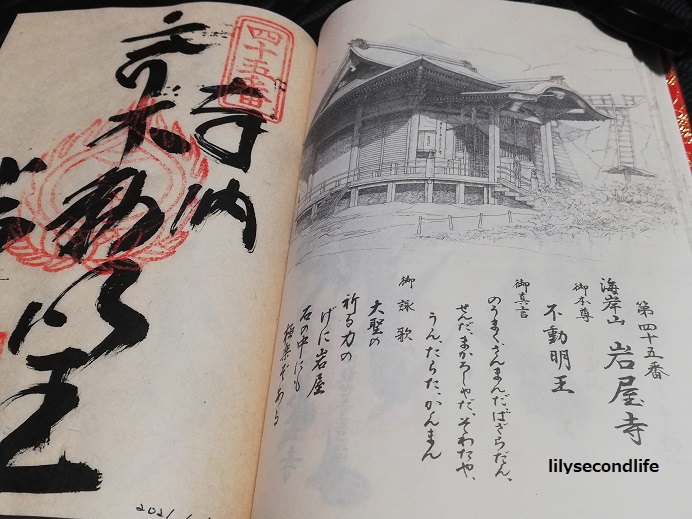 第四十五番
海岸山 岩屋寺
御本尊
不動明王
御真言
のうまくさんまんだばざらだん、
せんだ、まかろしゃだ、そわたや、
うんたらた、かんまん
御詠歌
大聖の
祈る力の
げに岩屋
石の中にも
極楽ぞある
四十五番
奉納
動明王
2021
lilysecondlife